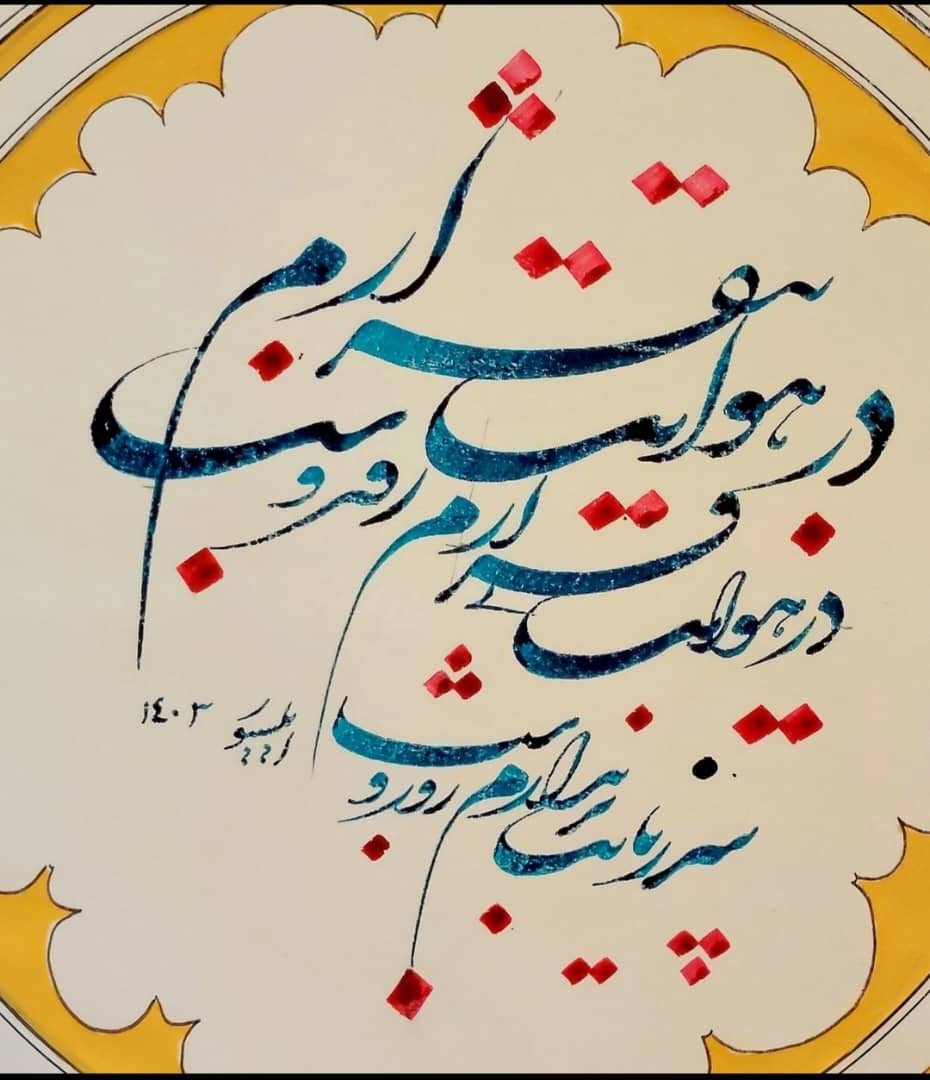 در هوایت بیقرارم
در هوایت بیقرارم روز و شب
سر ز پایت برندارم روز و شب
۱۴۰۳